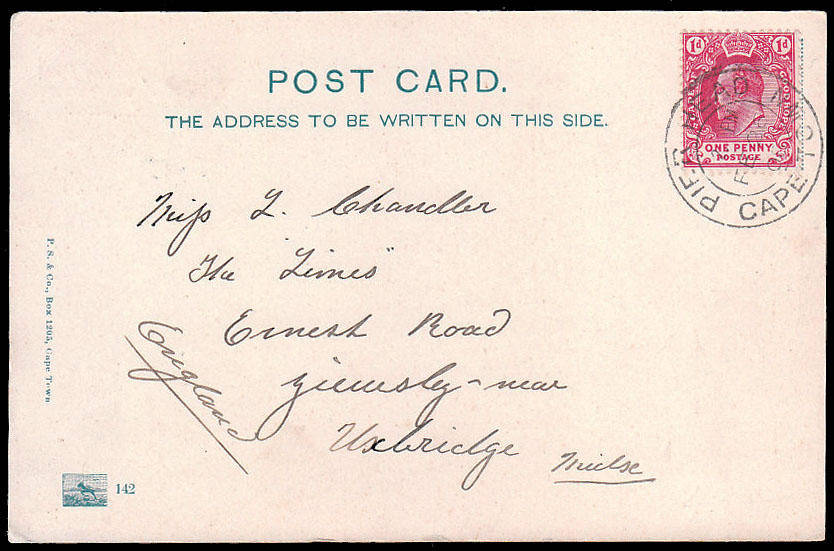 POST CARD.
THE ADDRESS TO BE WRITTEN ON THIS SIDE.
1d 1d
ONE PENNY
POSTAGE
PIER HEAD
CAPE TO
Miss L. Chandler
"The Limes"
Ernest Road
near
Uxbridge
England
P. S. & Co., Box 1205, Cape Town
142